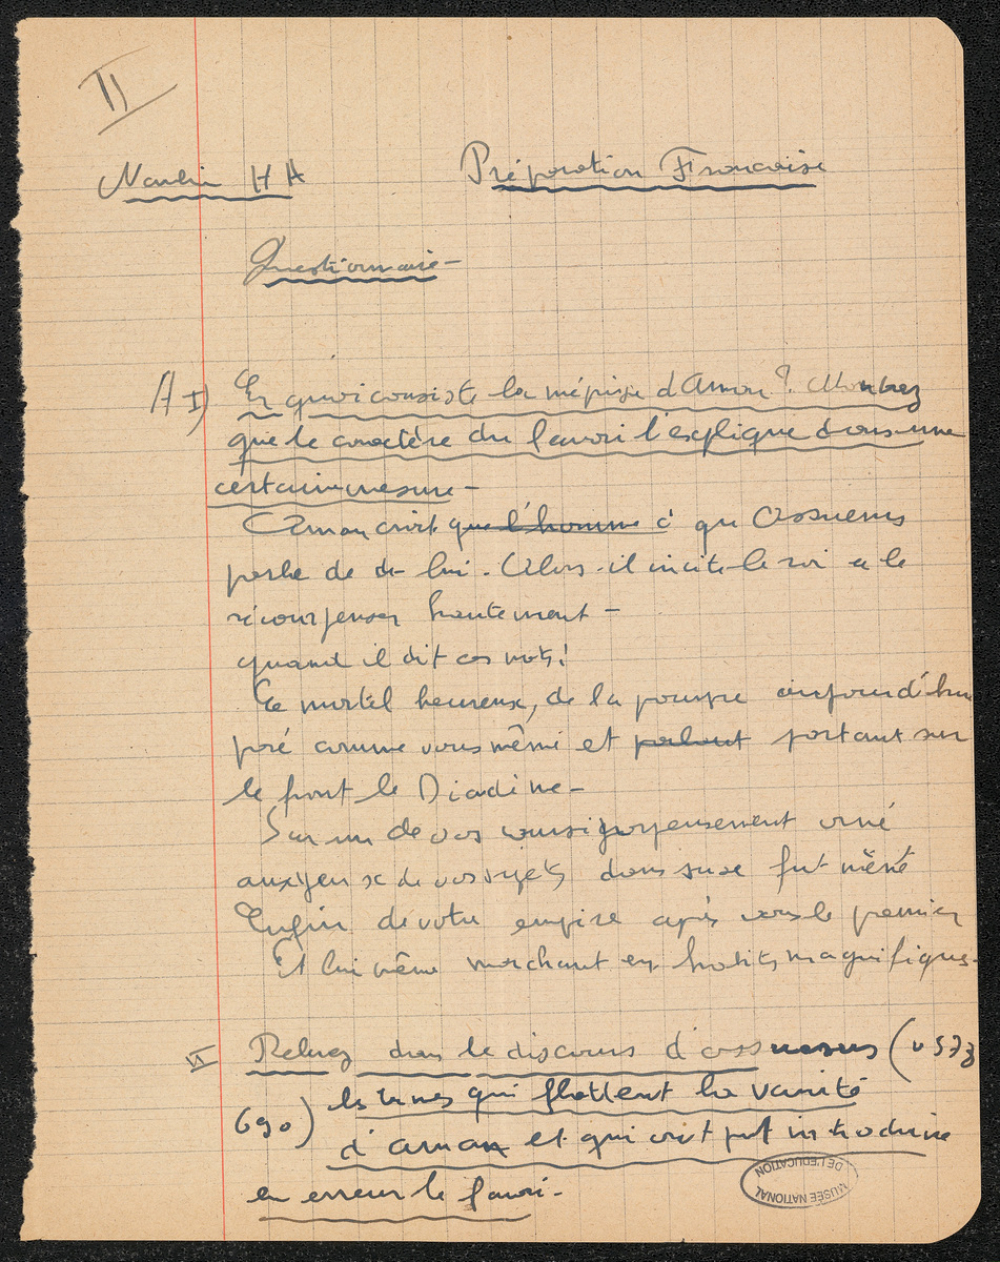 II
H A Préparation Française
Questionnaire -
A I) En quoi consiste la méprise d'Aman ? Montrez
que le caractère du favori l'explique dans une
certaine mesure -
Aman croit que l'homme c' qu Assuerus
parle de de lui. Alors il incite le roi a le
récompenser hautement -
quand il dit ces mots!
Ce mortel heureux, de la pourpre aujourd'hui
paré comme vous même et portant sur
le front le Diadème -
Sur un de vos coursiers pompeusement orné
aux yeux de vos sujets dans suse fut mêné
Enfin de votre empire après vous le premier
Et lui même marchant en habits magnifiques -
II Relevez dans le discours d'assuerus (v 573
690) les termes qui flattent la vanité
d'aman et qui ont put introduire
en erreur le favori -
MUSÉE NATIONAL
DE L'EDUCATION